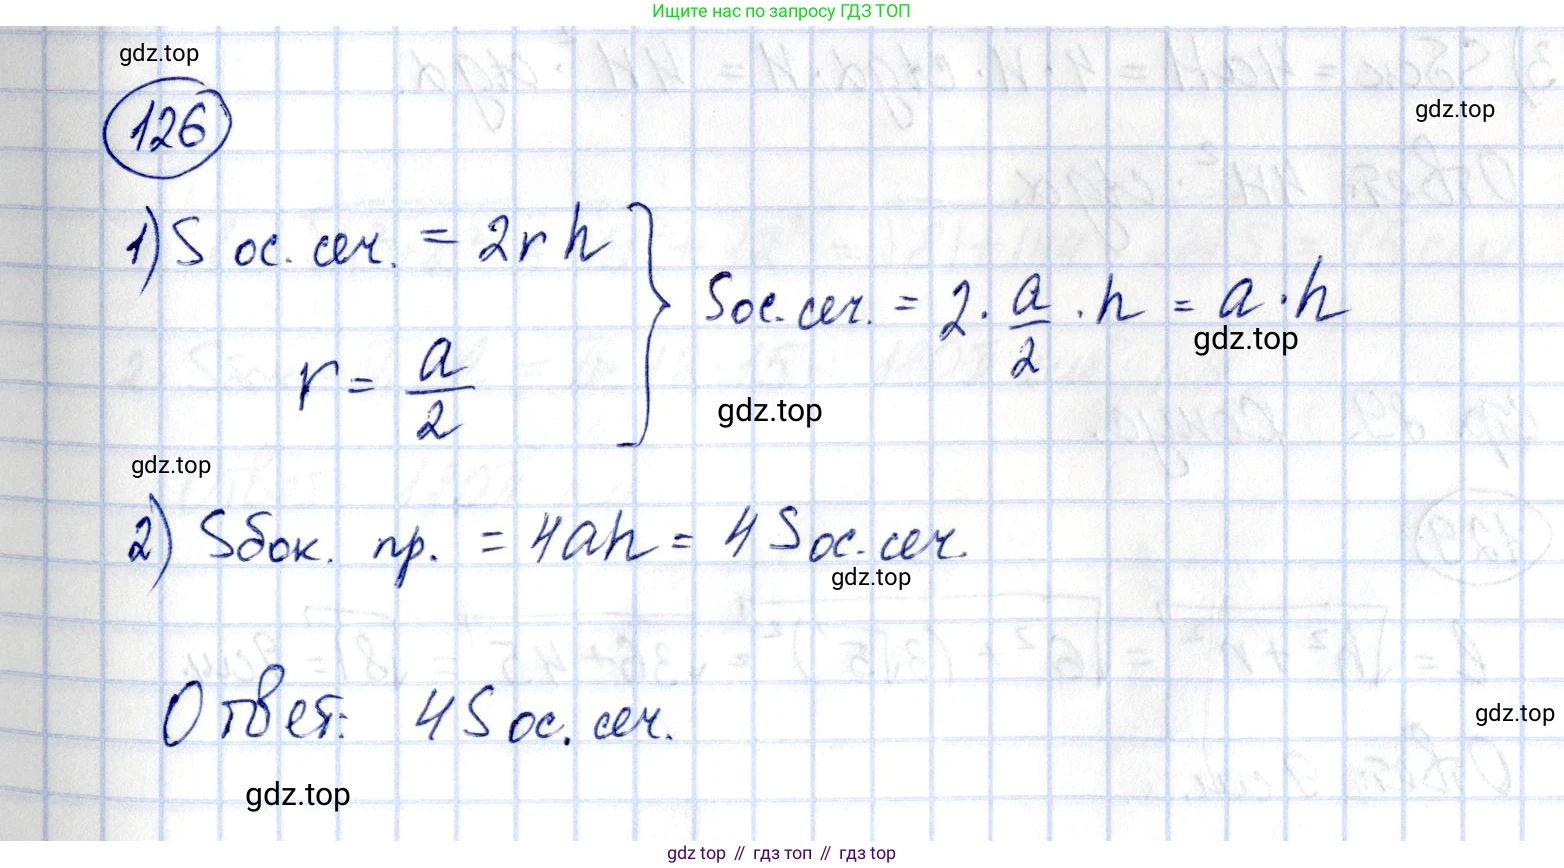 Ищите нас по запросу ГДЗ ТОП
gdz.top
gdz.top
126
1) S ос. сеч. = 2rh
r = a/2
Sос. сеч. = 2 · a/2 · h = a · h
gdz.top
gdz.top
gdz.top
2) Sбок. пр. = 4ah = 4Sос. сеч.
gdz.top
Ответ: 4Sос. сеч.
gdz.top
gdz.top
gdz.top // гдз топ // гдз.top